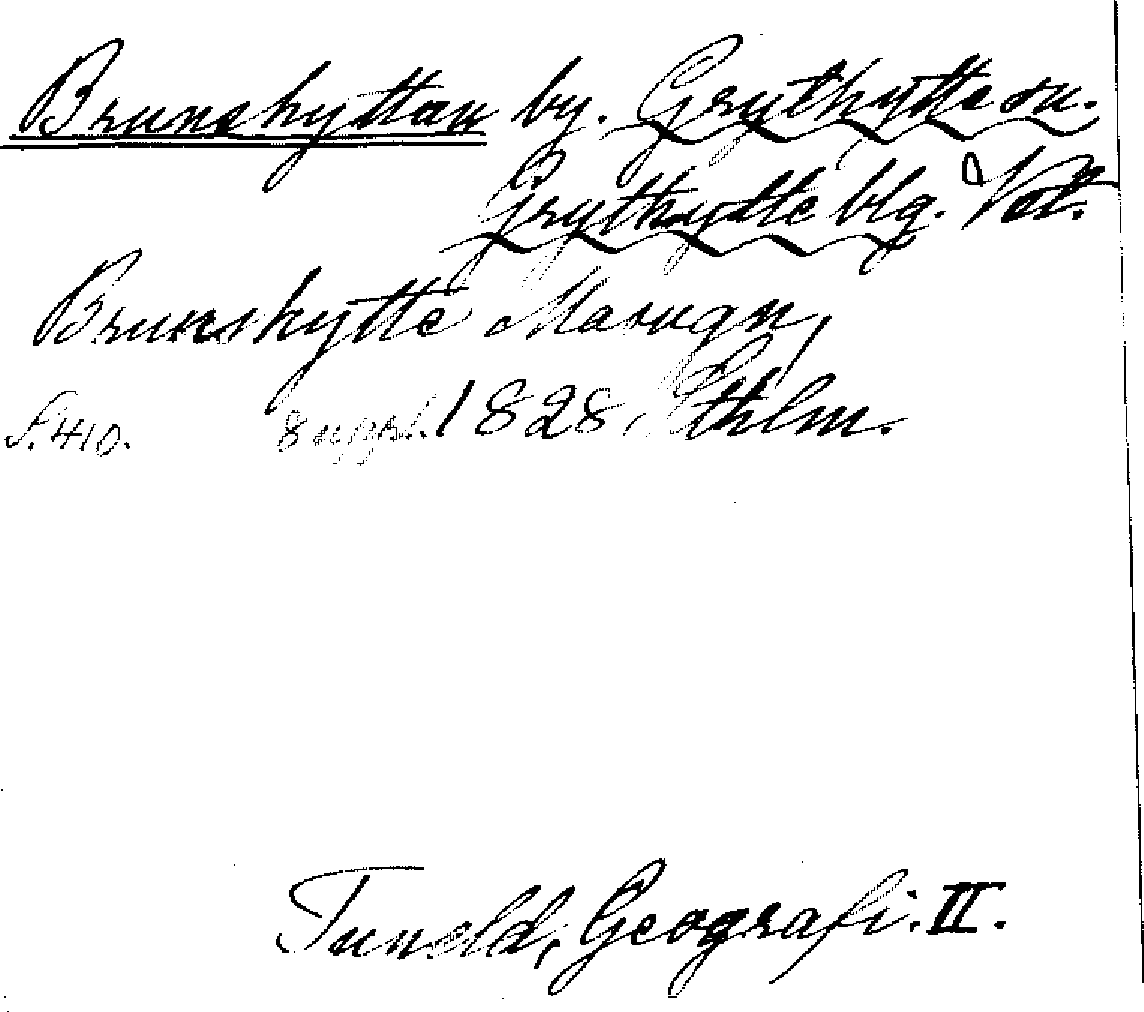 Brunshyttan by. Grythytte sn.
Grythytte blg. Vstm.
Brunshytte Masugn,
S. 410. 8 uppl. 1828, Sthlm.
Tuneld, Geografi. II.